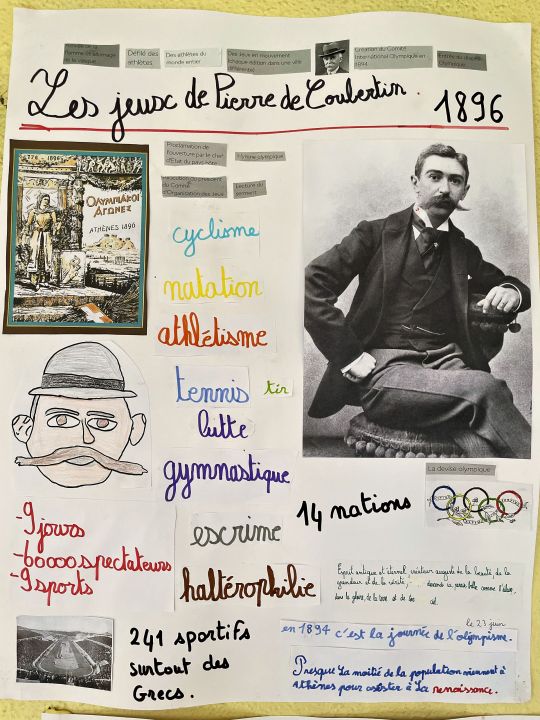 Défilé des
athlètes.
Des athlètes du
monde entier
Des Jeux en mouvement
(chaque édition dans une ville
différente)
Création du Comité
International Olympique en
1894
Entrée du drapeau
Olympique
Les jeux de Pierre de Coubertin. 1896
Proclamation de
l'ouverture par le chef
d'Etat du pays hôte
Hymne olympique
Allocution du président
du Comité
d'Organisation des Jeux
Lecture du
serment
776 - 1896
ΟΛΥΜΠΙΑΚΟΙ
ΑΓΩΝΕΣ
ATHÈNES 1896
cyclisme
natation
athlétisme
tennis
tir
lutte
gymnastique
escrime
haltérophilie
-9 jours
-60000 spectateurs
-9 sports
14 nations
La devise olympique
Esprit antique et éternel, créateur auguste de la beauté, de la
grandeur et de la vérité,
le 23 juin
en 1894 c'est la journée de l'olympisme.
241 sportifs
surtout des
Grecs.
Presque la moitié de la population viennent à
Athènes pour assister à la renaissance.